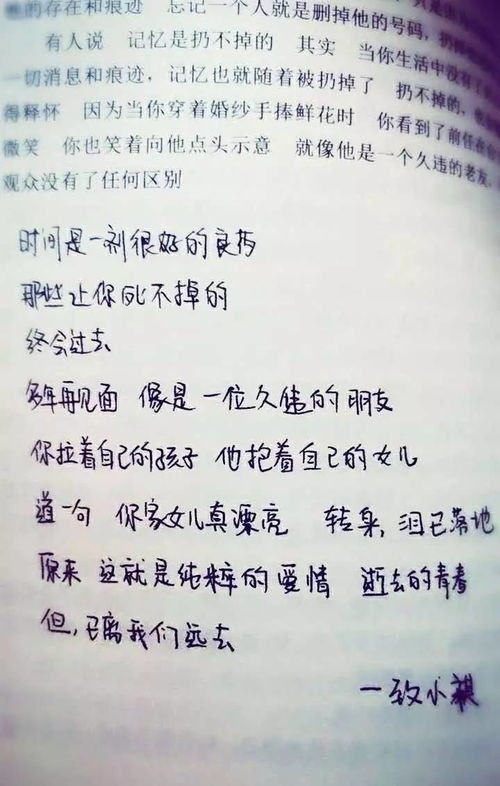 的存在和痕迹 忘记一个人就是删掉他的号码,扔掉
有人说 记忆是扔不掉的 其实 当你生活中没有了
一切消息和痕迹,记忆也就随着被扔掉了 扔不掉的,
得释怀 因为当你穿着婚纱手捧鲜花时 你看到了前任在
微笑 你也笑着向他点头示意 就像他是一个久违的老友,
观众没有了任何区别
时间是一剂很好的良药
那些让你死不掉的
终会过去
多年再见面 像是一位久违的朋友
你拉着自己的孩子 他抱着自己的女儿
道一句 你家女儿真漂亮 转身,泪已落地
原来 这就是纯粹的爱情 逝去的青春
但,已离我们远去
一致小祺